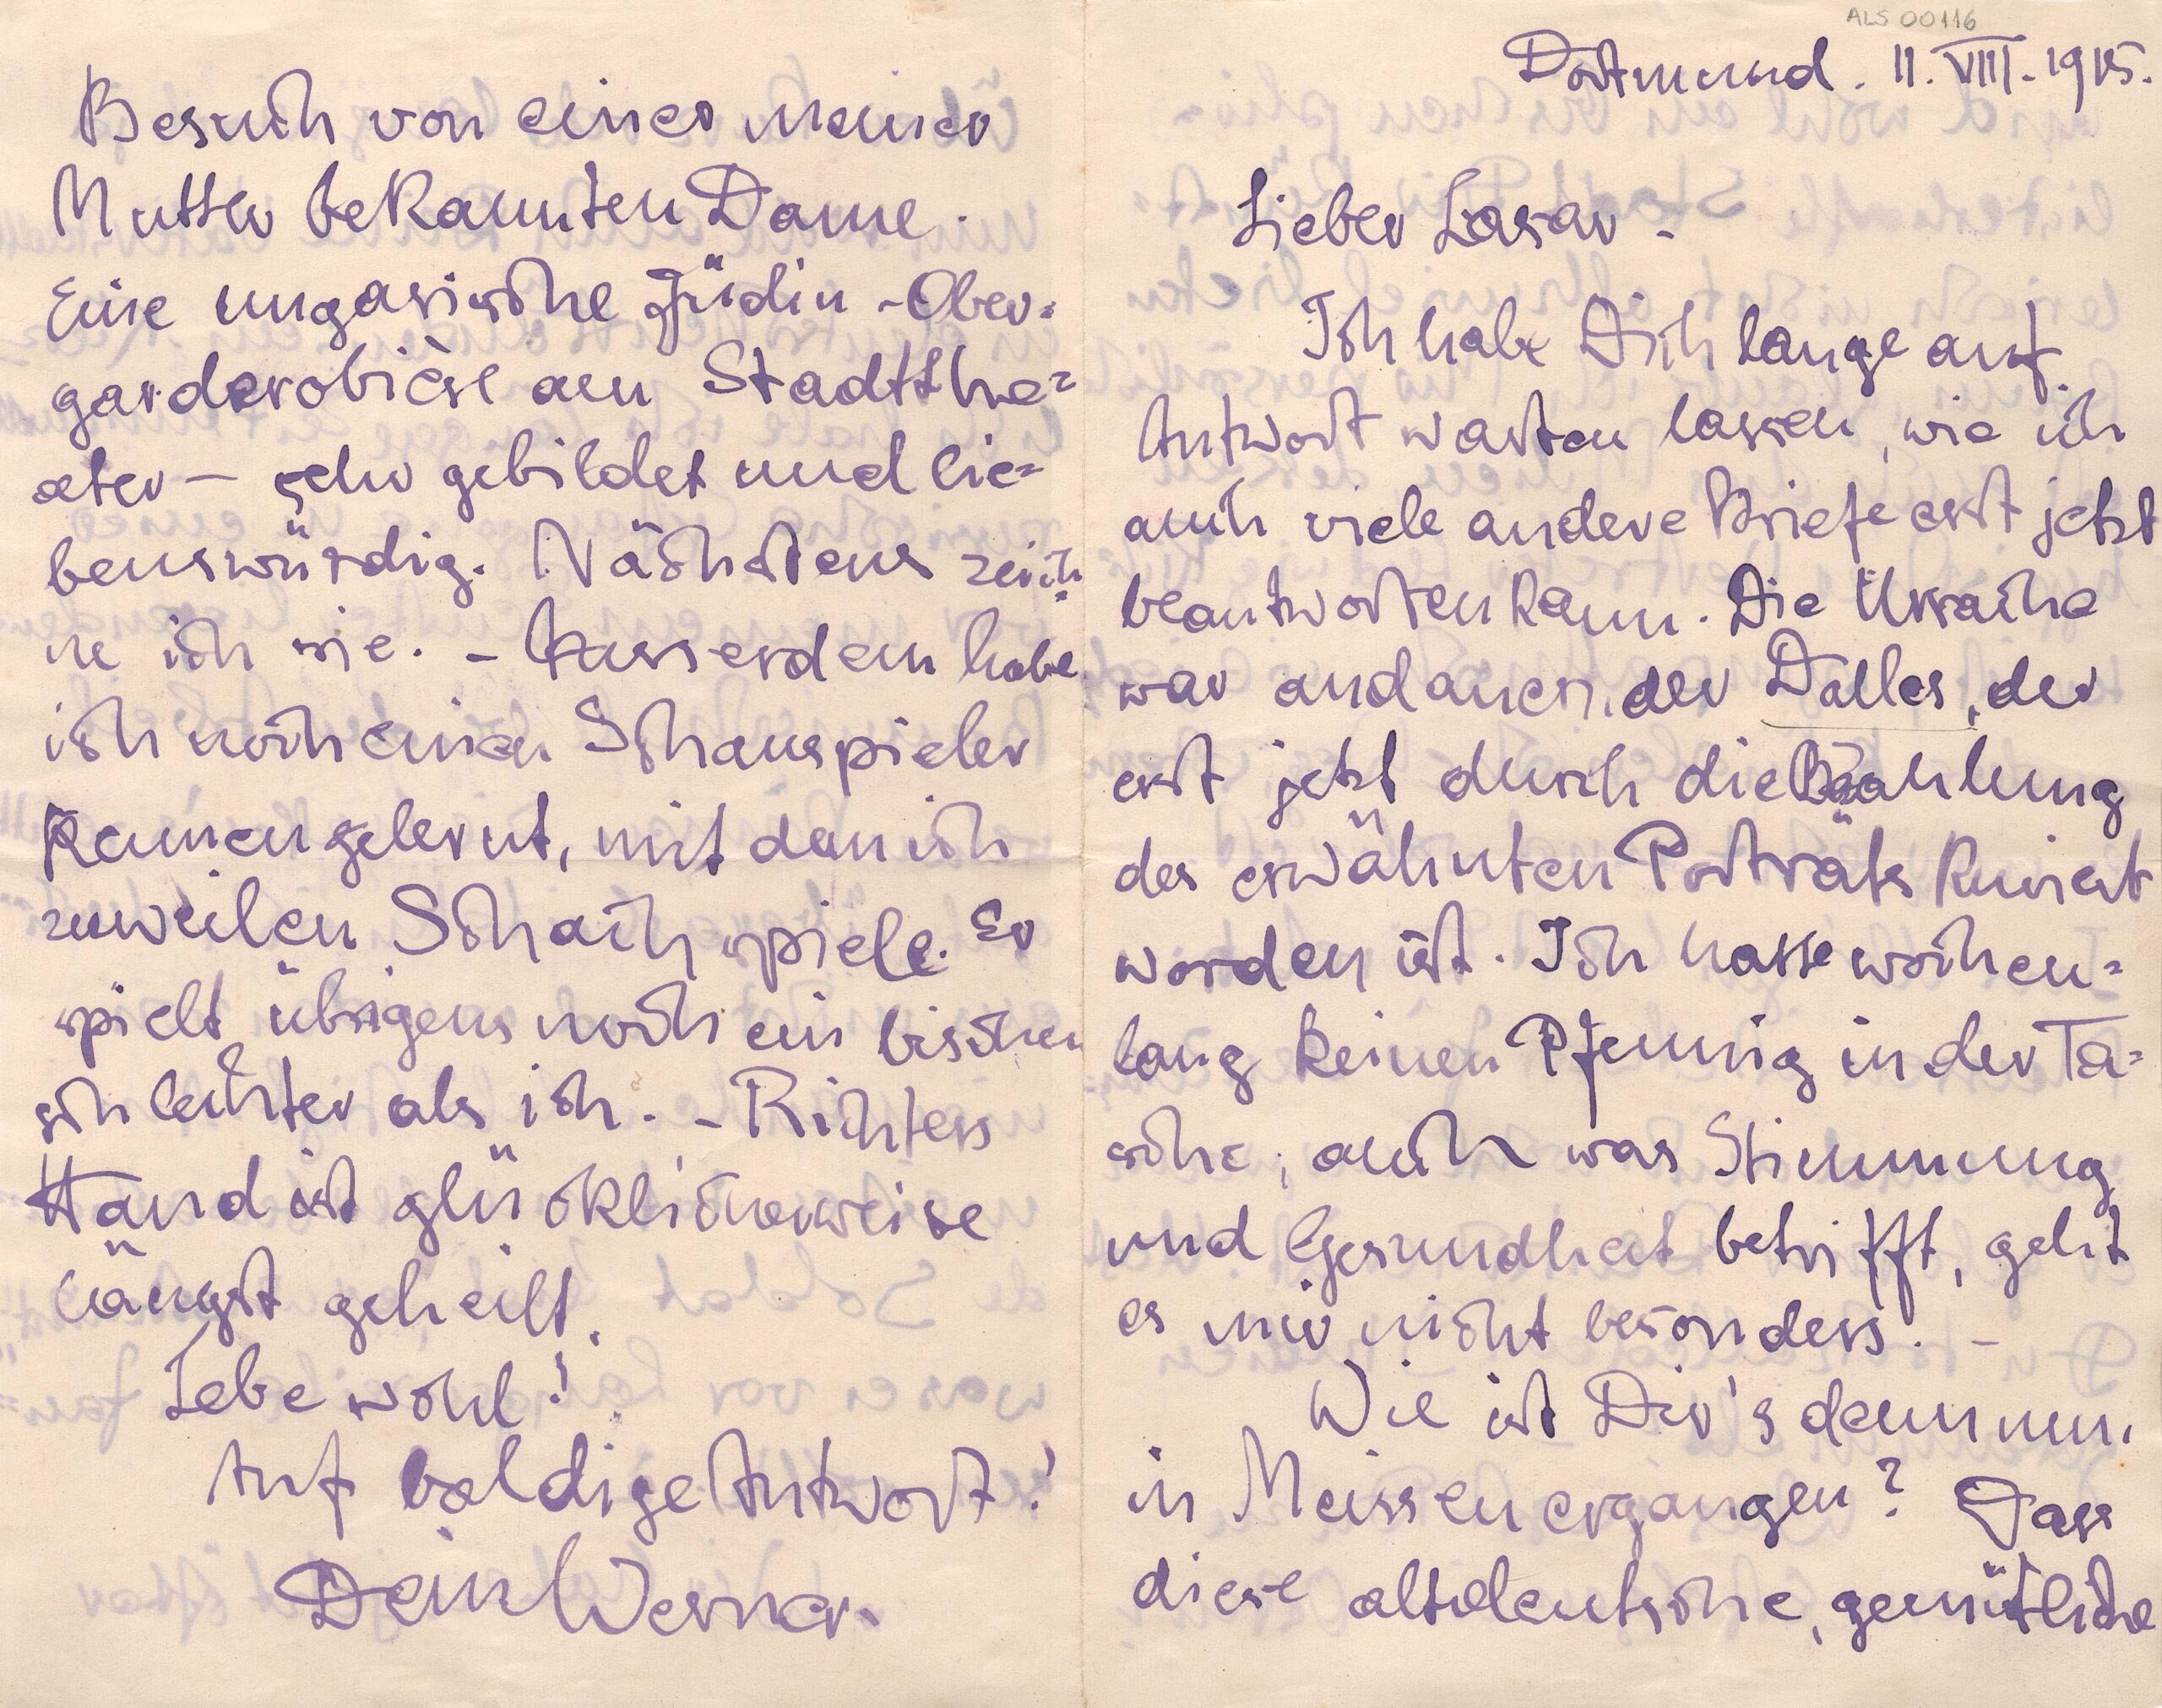 ALS 00116
Dortmund. 11. VIII. 1915.
Lieber Lasar -
Ich habe Dich lange auf
Antwort warten lassen, wie ich
auch viele andere Briefe erst jetzt
beantworten kann. Die Ursache
war andauern. der Dalles, der
erst jetzt durch die Bezahlung
des erwähnten Porträts kuriert
worden ist. Ich hatte wochen=
lang keinen Pfennig in der Ta=
sche, auch was Stimmung
und Gesundheit betrifft, geht
es mir nicht besonders. -
Wie ist Dir's denn nun
in Meissen ergangen? Dass
diese altdeutsche, gemütliche
Besuch von einer meiner
Mutter bekannten Dame.
Eine ungarische Jüdin - Ober=
garderobière am Stadtthe=
ater — sehr gebildet und lie=
benswürdig. Nächstens zeich=
ne ich sie. - Ausserdem habe
ich noch einen Schauspieler
kennengelernt, mit dem ich
zuweilen Schach spiele. Er
spielt übrigens noch ein bischen
schlechter als ich. - Richters
Hand ist glücklicherweise
längst geheilt.
Lebe wohl!
Auf baldige Antwort!
Dein Werner.